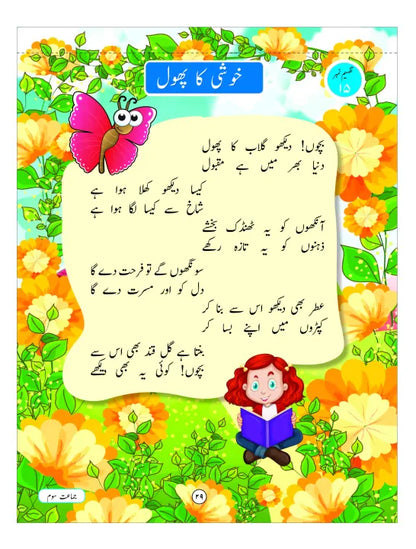 خوشی کا پھول
۱۵
بچوں! دیکھو گلاب کا پھول
دنیا بھر میں ہے مقبول
کیسا دیکھو کھلا ہوا ہے
شاخ سے کیسا لگا ہوا ہے
آنکھوں کو یہ ٹھنڈک بخشے
ذہنوں کو یہ تازہ رکھے
سونگھوں گے تو فرحت دے گا
دل کو اور مسرت دے گا
عطر بھی دیکھو اس سے بنا کر
کپڑوں میں اپنے بسا کر
بنتا ہے گل قند بھی اس سے
بچوں! کوئی یہ بھی دیکھے
۲۹
جماعت سوم